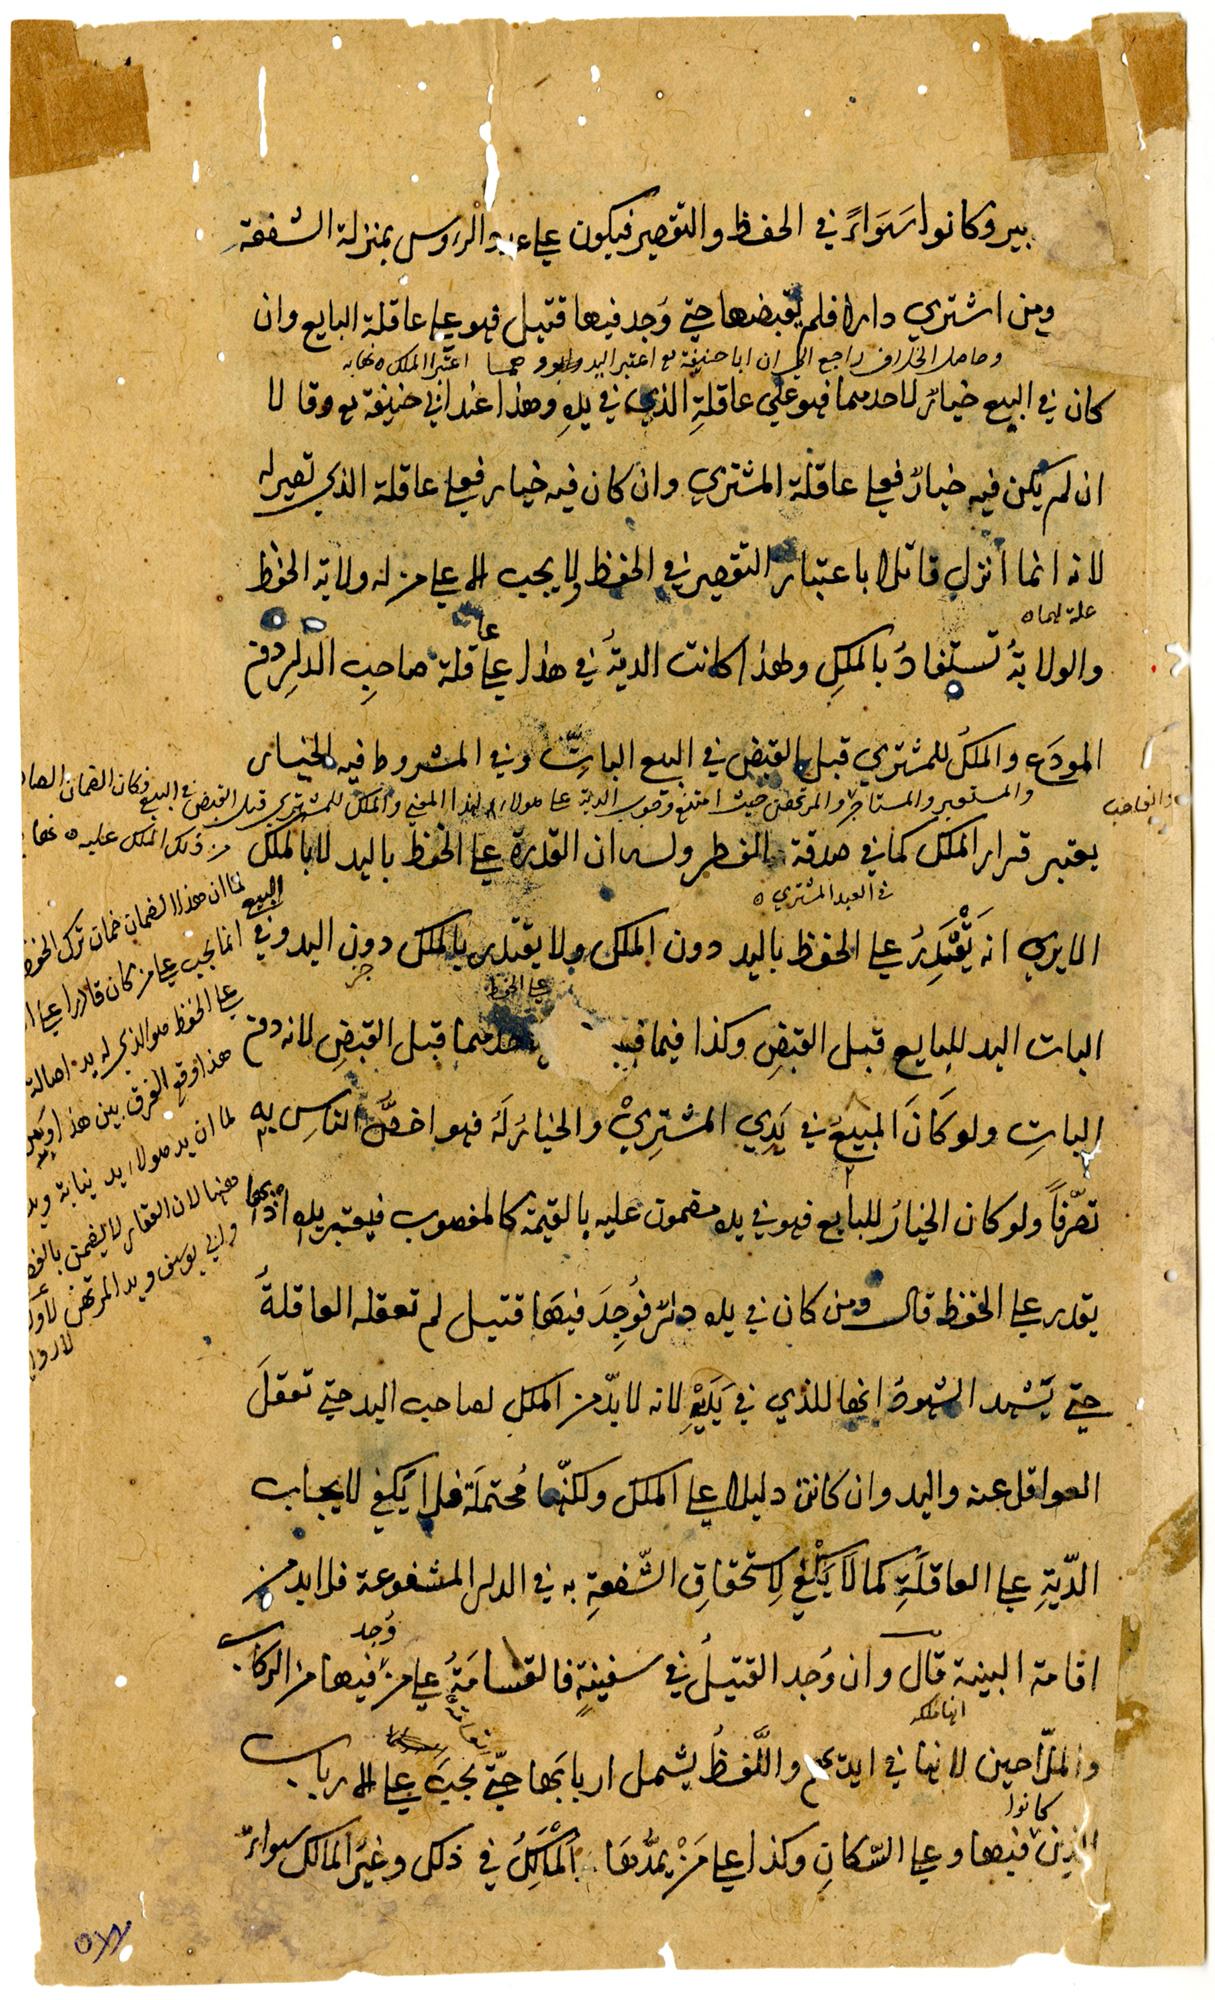 وكانوا سَوَاءً في الحفظ والتقصير فيكون على عدد الروس بمنزلة الشفعة
ومن اشتري دارا فلم يقبضها حتى وُجد فيها قتيل فهو على عاقلة البايع وان
وحاصل الخلاف راجع الى ان ابا حنيفة رح اعتبر اليد وهما اعتبرا الملك نهايه
كان في البيع خيارٌ لاحدهما فهو على عاقلةِ الذي في يدهِ وهذا عند ابي حنيفة رح وقالا
ان لم يكن فيه خيارٌ فعلى عاقلة المشتري وان كان فيه خيار فعلى عاقلة الذي تصير له
لانه انما انزل قاتلا باعتبار التقصير في الحفظ ولا يجب الا على من له ولاية الحفظ
علة لهما
والولايةُ تستفادُ بالملكِ ولهذا كانت الديةُ في هذا على عاقلة صاحبِ الدار دون
المودَع والملكُ للمشتري قبل القبض في البيع الباتِّ وفي المشروط فيه الخيار
والمستعير والمستاجر والمرتهن حيث امتنع وجوب الدية على هولاء لهذا المعنى والملك للمشتري قبل القبض في البيع فكان الضمان
والغاصب
يعتبر قرار الملك كما في صدقة الفطر وله ان القدرة على الحفظ باليد لا بالملك
من ذلك الملك عليه
في العبد المشتري
الا يرى انه يَقْتَدِرُ على الحفظ باليد دون الملك ولا يقتدر بالملك دون اليد وفي البيع
على الحفظ
البات اليد للبايع قبل القبضِ وكذا فيما فيه لاحدهما قبل القبضِ لانه دون
الباتِ ولو كَانَ المبيعُ في يَدِي المشتريْ والخيارُ لَهُ فهو اخصُّ الناسِ به
تصّرفاً ولو كان الخيارُ للبايع فهو في يده مضمون عليه بالقيمة كالمغصوب فيعتبر يده اذ بها
يقدر على الحفظ قال ومن كان في يده دارٌ فوُجِدَ فيهَا قتيل لم تعقله العاقلةُ
حتى تَشهد الشهودُ انها للذي في يَدَيْهِ لانه لا بدّ من الملك لصاحب اليد حتى تعقلَ
العواقل عنه واليد وان كانت دليلا على الملك ولكنّها مُحتمَلَة فلا يكفي لايجاب
الدّيةِ على العاقلَةِ كما لا يَكْفي لاستحقاقِ الشّفعةِ به في الدار المشفوعة فلا بد من
اقامة البينة قال وان وُجد القتيلُ في سفينةٍ فالقسامَةُ على من فيها من الركاب
وُجد
والملّاحين لانها في ايديهم واللَّفظُ يشمل اربابَها حتّى تجبَ على الارباب
الذين كانوا فيها وعلى السّكانِ وكذا على مَنْ يمدُّهَا المَالِكُ في ذلك وغيرُ المالك سواءٌ
لما ان هذا الضمان ضمان ترك الحفظ
انما يجب على من كان قادرا على
على الحفظ هو الذي له يد اصالة
هذا وقع الفرق بين هذا وبين
لما ان يد هولاء يد نيابة ويد
لان العقار لا يضمن بالغصب
وابي يوسف ويد المرتهن